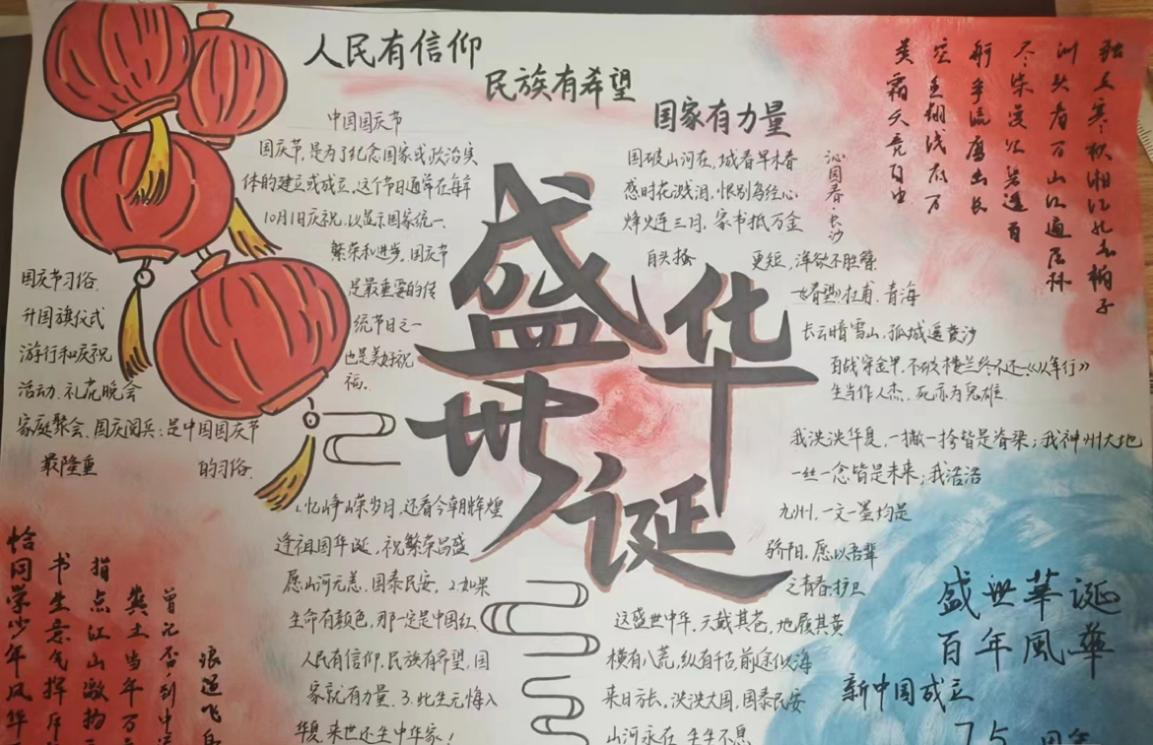 人民有信仰
民族有希望
国家有力量
中国国庆节
国庆节,是为了纪念国家或政治实
体的建立或成立,这个节日通常在每年
10月1日庆祝,以显示国家统一、
繁荣和进步,国庆节
是最重要的传
统节日之一
也是美好祝
福。
国庆节习俗
升国旗仪式
游行和庆祝
活动、礼花晚会
家庭聚会、国庆阅兵:是中国国庆节
最隆重 的习俗.
盛世
华诞
国破山河在,城春草木春
感时花溅泪,恨别鸟惊心
烽火连三月,家书抵万金
白头搔 更短,浑欲不胜簪
《春望》杜甫,青海
长云暗雪山,孤城遥望沙
百战穿金甲,不破楼兰终不还《从军行》
生当作人杰,死亦为鬼雄
沁园春·长沙
独立寒秋湘江北去橘子
洲头看万山红遍层林
尽染漫江碧透百
舸争流鹰击长
空鱼翔浅底万
类霜天竞自由
我泱泱华夏,一撇一捺皆是脊梁;我神州大地
一丝一念皆是未来;我浩浩
九州,一文一墨均是
骄阳,愿以吾辈
之青春,护卫
这盛世中华,天戴其苍,地履其黄
横有八荒,纵有千古,前途似海
来日方长,泱泱大国,国泰民安
山河永在,生生不息
1.忆峥嵘岁月,还看今朝辉煌
逢祖国华诞,祝繁荣昌盛
愿山河无恙,国泰民安,2.如果
生命有颜色,那一定是中国红
人民有信仰,民族有希望,国
家就有力量.3.此生无悔入
华夏来世还生中华家!
恰同学少年风华
书生意气挥斥
指点江山激扬
粪土当年万
曾记否,到中
浪遏飞舟
盛世華诞
百年風華
新中国成立
75周年